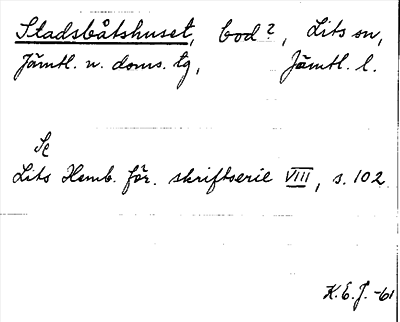 Stadsbåtshuset, bod?, Lits sn,
Jämtl. n. doms. tg, Jämtl. l.
Se
Lits Hemb. för. skriftserie VIII, s. 102.
K.E.J. -61